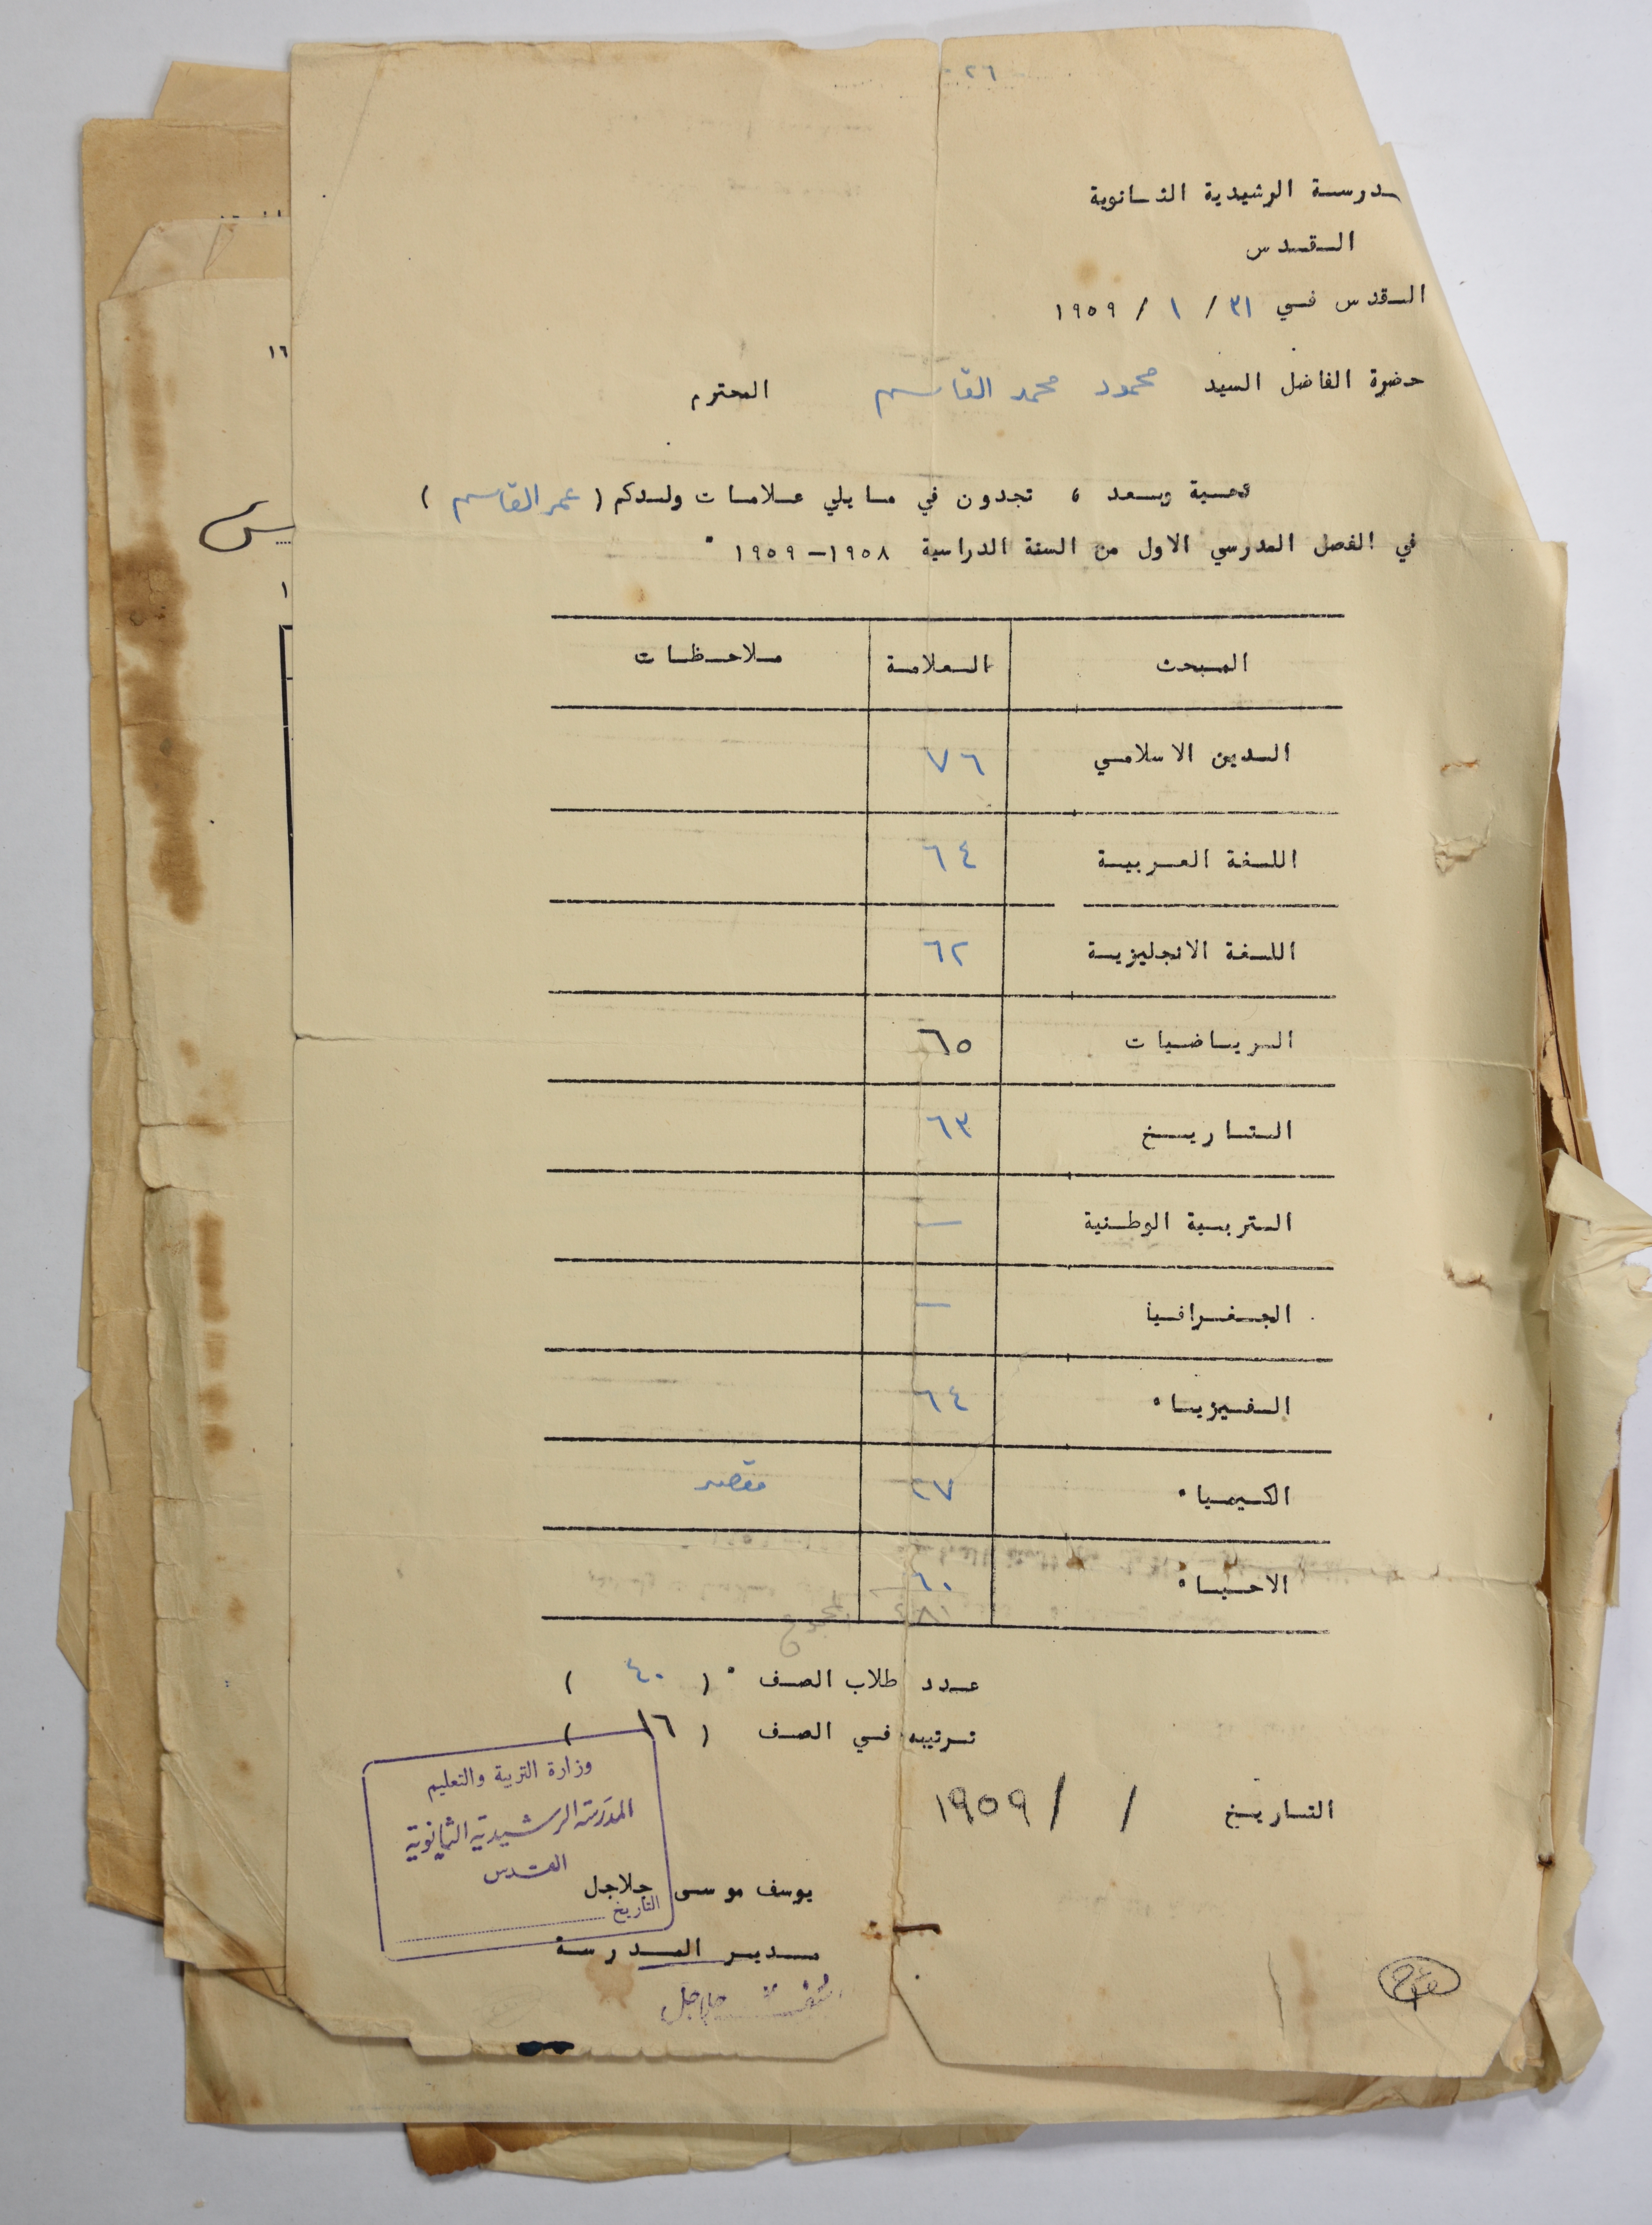 ٢٦
مدرسة الرشيدية الثانوية
القدس
القدس في ٣١ / ١ / ١٩٥٩
حضرة الفاضل السيد محمود محمد القاسم المحترم
تحية وبعد ، تجدون في ما يلي علامات ولدكم ( عمر القاسم )
في الفصل المدرسي الاول من السنة الدراسية ١٩٥٨ - ١٩٥٩ .
المبحث العلامة ملاحظات
الدين الاسلامي ٧٦
اللغة العربية ٦٤
اللغة الانجليزية ٦٢
الرياضيات ٦٥
التاريخ ٦٣
التربية الوطنية —
الجغرافيا —
الفيزياء ٦٤
الكيمياء ٢٧ مقصر
الاحياء ٦٠
المجموع
عدد طلاب الصف ( ٤٠ )
ترتيبه في الصف ( ١٦ )
التاريخ / / ١٩٥٩
وزارة التربية والتعليم
المدرسة الرشيدية الثانوية
القدس
التاريخ
يوسف موسى جلاجل
مدير المدرسة
١٦
١